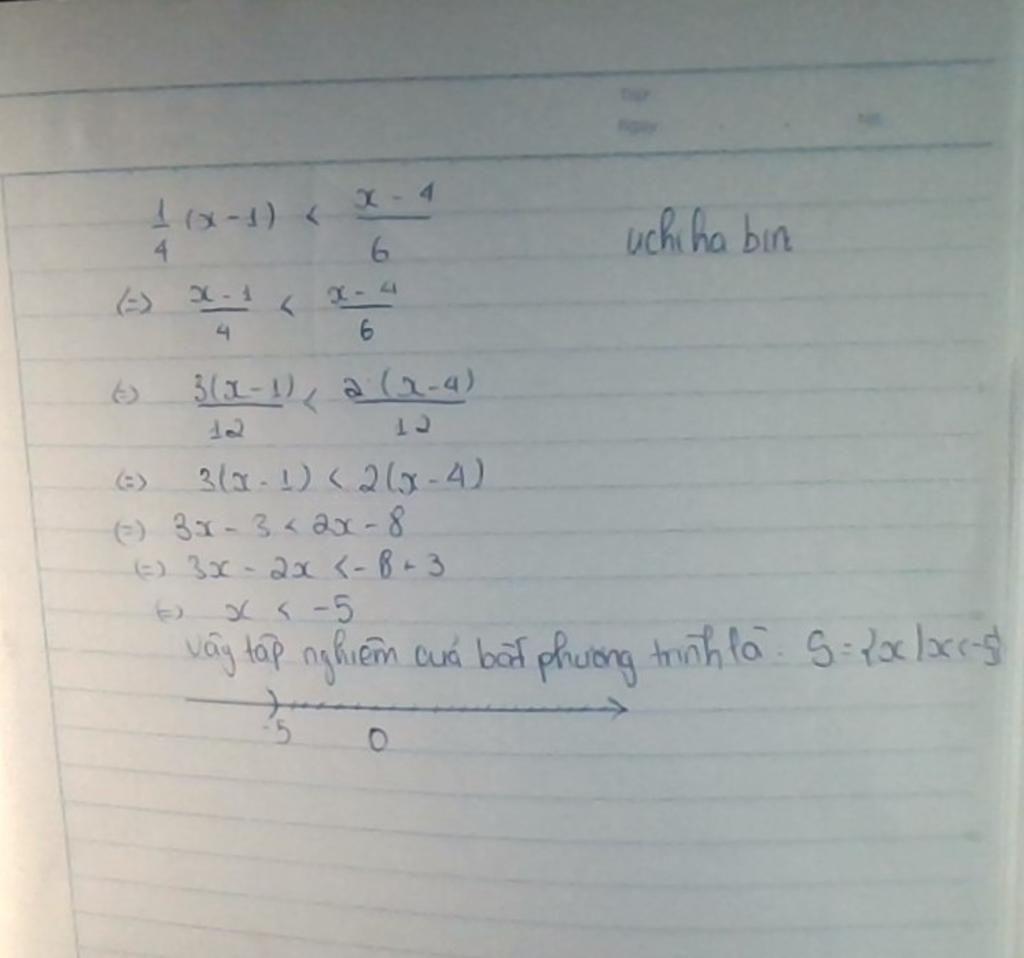 1/4 (x-1) < (x-4)/6
uchiha bin
(=) (x-1)/4 < (x-4)/6
(=) 3(x-1)/12 < 2(x-4)/12
(=) 3(x-1) < 2(x-4)
(=) 3x - 3 < 2x - 8
(=) 3x - 2x < -8 + 3
(=) x < -5
Vậy tập nghiệm cuả bất phương trình là: S = {x / x < -5}
-5 0